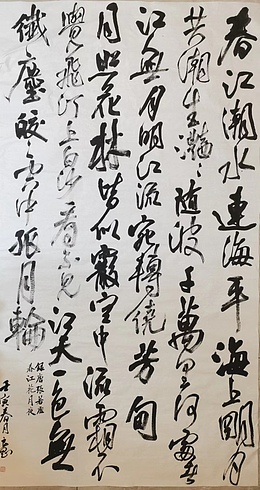 春江潮水連海平海上明月
共潮生灔〻随波千萬里何處春
江無月明江流宛轉繞芳甸
月照花林皆似霰空中流霜不
覺飛汀上白沙看不見江天一色無
纖塵皎〻空中孤月輪
錄唐張若虛
春江花月夜
壬寅春月